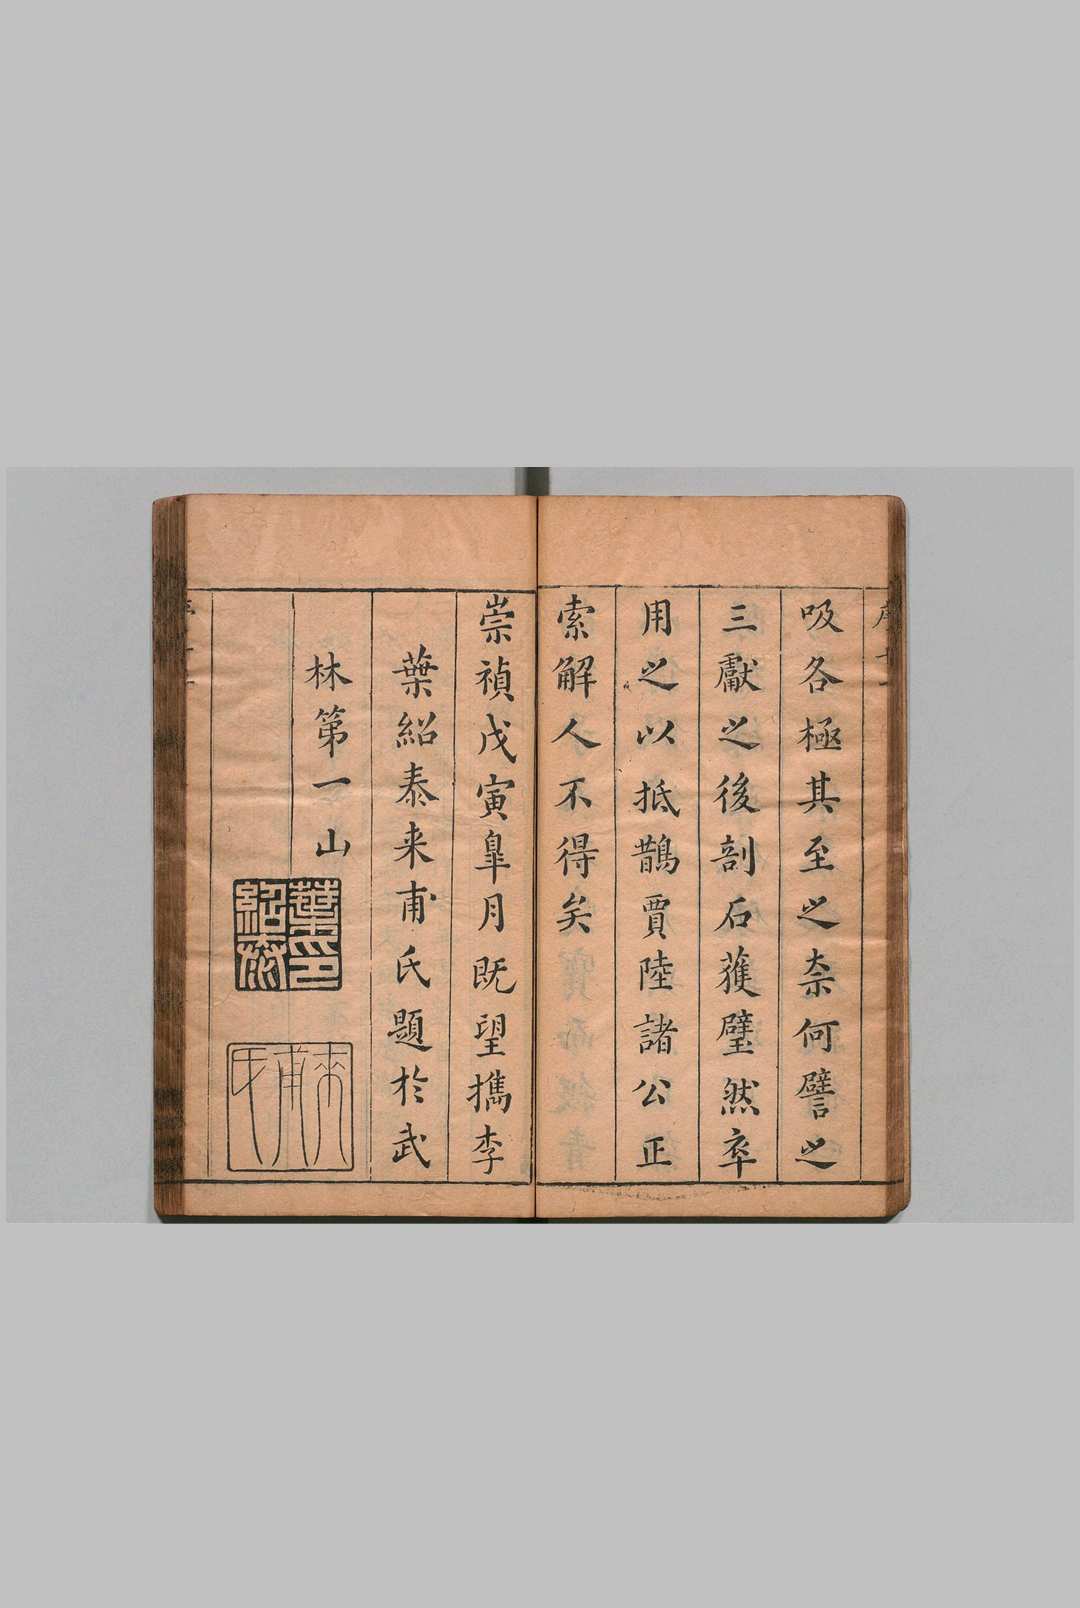 吸各極其至之柰何譬之
三獻之後剖石獲璧然卒
用之以抵鵲賈陸諸公正
索解人不得矣
崇禎戊寅皐月既望擕李
葉紹泰来甫氏題於武
林第一山
葉印紹泰
来甫氏